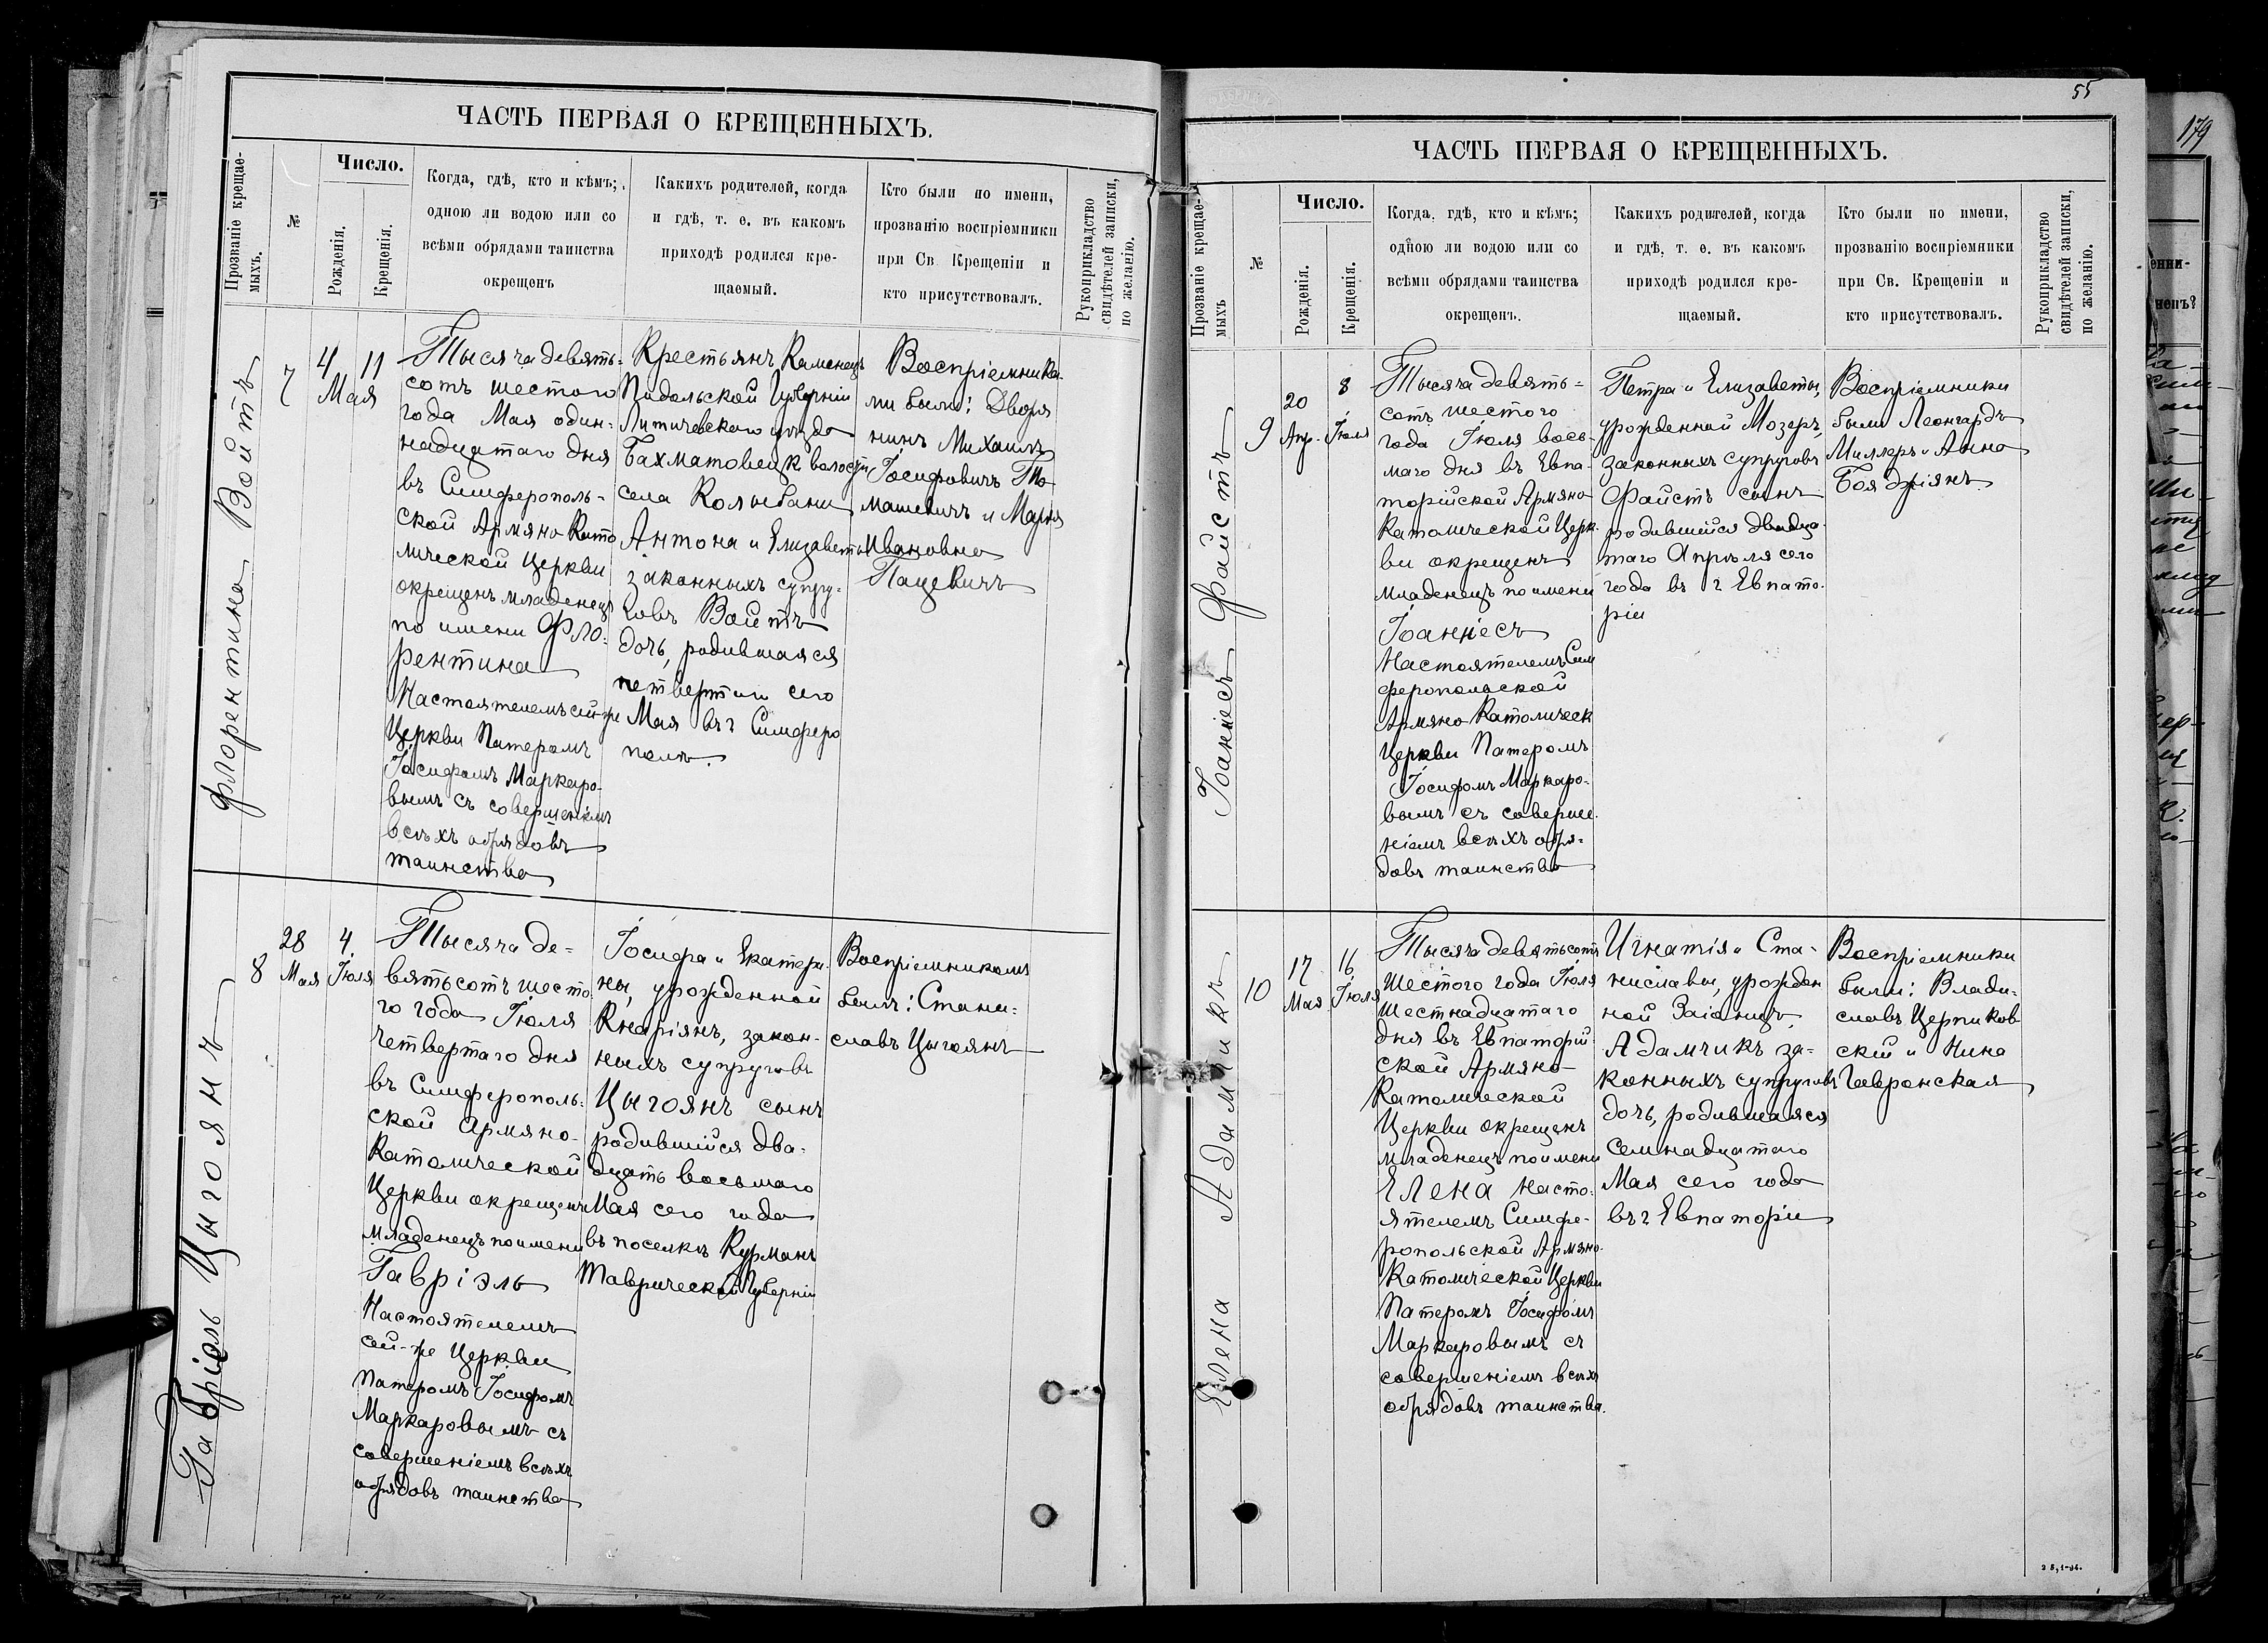 ЧАСТЬ ПЕРВАЯ О КРЕЩЕННЫХЪ.
Прозваніе крещае-
мыхъ.
№
Число.
Рожденія.
Крещенія.
Когда, гдѣ, кто и кѣмъ;
одною ли водою или со
всѣми обрядами таинства
окрещенъ
Какихъ родителей, когда
и гдѣ, т. е. въ какомъ
приходѣ родился кре-
щаемый.
Кто были по имени,
прозванію воспріемники
при Св. Крещеніи и
кто присутствовалъ.
Рукоприкладство
свидѣтелей записки,
по желанію.
Флорентина Войтъ
7
4
11
Мая
Тысяча девять-
сотъ шестого
года Мая один-
надцатаго дня
въ Симферополь-
ской Армяно Като
лической Церкви
окрещенъ младенецъ
по имени Фло-
рентина
Настоятелемъ сей-же
Церкви Патеромъ
Іосифомъ Маркаро-
вымъ съ совершеніемъ
всѣхъ обрядовъ
таинства
Крестьянъ Каменецъ
Подольской Губерніи
Литичевского уѣзда
Бахматовецк волости
села Колыбани
Антона и Елизаветы
законныхъ супру-
говъ Войтъ
дочь, родившаяся
четвертаго сего
Мая въ г Симферо
полѣ.
Воспріемника-
ми были: Дворя
нинъ Михаилъ
Іосифовичъ То
машевичъ и Марія
Ивановна
Пацевичъ
Габріель Цыгоянъ
8
28
Мая
4
Іюля
Тысяча де-
вятьсотъ шесто
го года Іюля
четвертаго дня
въ Симферополь-
ской Армяно-
Католической
Церкви окрещенъ
младенецъ по имени
Гавріэль
Настоятелемъ
сей-же Церкви
Патеромъ Іосифомъ
Маркаровымъ съ
совершеніемъ всѣхъ
обрядовъ таинства
Іосифа и Екатери-
ны, урожденной
Кнаріянъ, закон-
ныхъ супруговъ
Цыгоянъ сынъ
родившійся два-
дцать восьмаго
Мая сего года
въ поселкѣ Курманъ
Таврической Губерніи
Воспріемникомъ
былъ: Стани-
славъ Цыгоянъ
55
179
ЧАСТЬ ПЕРВАЯ О КРЕЩЕННЫХЪ.
Прозваніе крещае-
мыхъ
№
Число.
Рожденія.
Крещенія.
Когда, гдѣ, кто и кѣмъ;
одною ли водою или со
всѣми обрядами таинства
окрещенъ.
Какихъ родителей, когда
и гдѣ, т. е. въ какомъ
приходѣ родился кре-
щаемый.
Кто были по имени,
прозванію воспріемники
при Св. Крещеніи и
кто присутствовалъ.
Рукоприкладство
свидѣтелей записки,
по желанію.
Іоаннесъ Файстъ
9
20
Апр.
8
Іюля
Тысяча девять-
сотъ шестого
года Іюля вось-
маго дня въ Евпа-
торійской Армяно
Католической Церк-
ви окрещенъ
младенецъ по имени
Іоаннесъ
Настоятелемъ Сим
феропольской
Армяно Католическ
Церкви Патеромъ
Іосифомъ Маркаро-
вымъ съ соверше-
ніемъ всѣхъ обря-
довъ таинства
Петра и Елизаветы,
урожденной Мозеръ,
законныхъ супруговъ
Файстъ сынъ
родившійся двадца-
таго Апрѣля сего
года въ г Евпато-
ріи
Воспріемники
были Леонгардъ
Миллеръ и Анна
Бояджіянъ
Елена Адамчикъ
10
17
Мая
16
Іюля
Тысяча девятьсотъ
Шестого года Іюля
Шестнадцатаго
дня въ Евпаторій
ской Армяно-
Католической
Церкви окрещенъ
младенецъ по имени
Елена Насто-
ятелемъ Симфе-
ропольской Армяно-
Католической Церкви
Патеромъ Іосифомъ
Маркаровымъ съ
совершеніемъ всѣхъ
обрядовъ таинства.
Игнатія и Ста-
ниславы, урожден
ной Заіонцъ,
Адамчикъ за-
конныхъ супруговъ
дочь, родившаяся
семнадцатаго
Мая сего года
въ г Евпаторіи
Воспріемники
были: Влади-
славъ Церпиков
скій и Нина
Гавронская